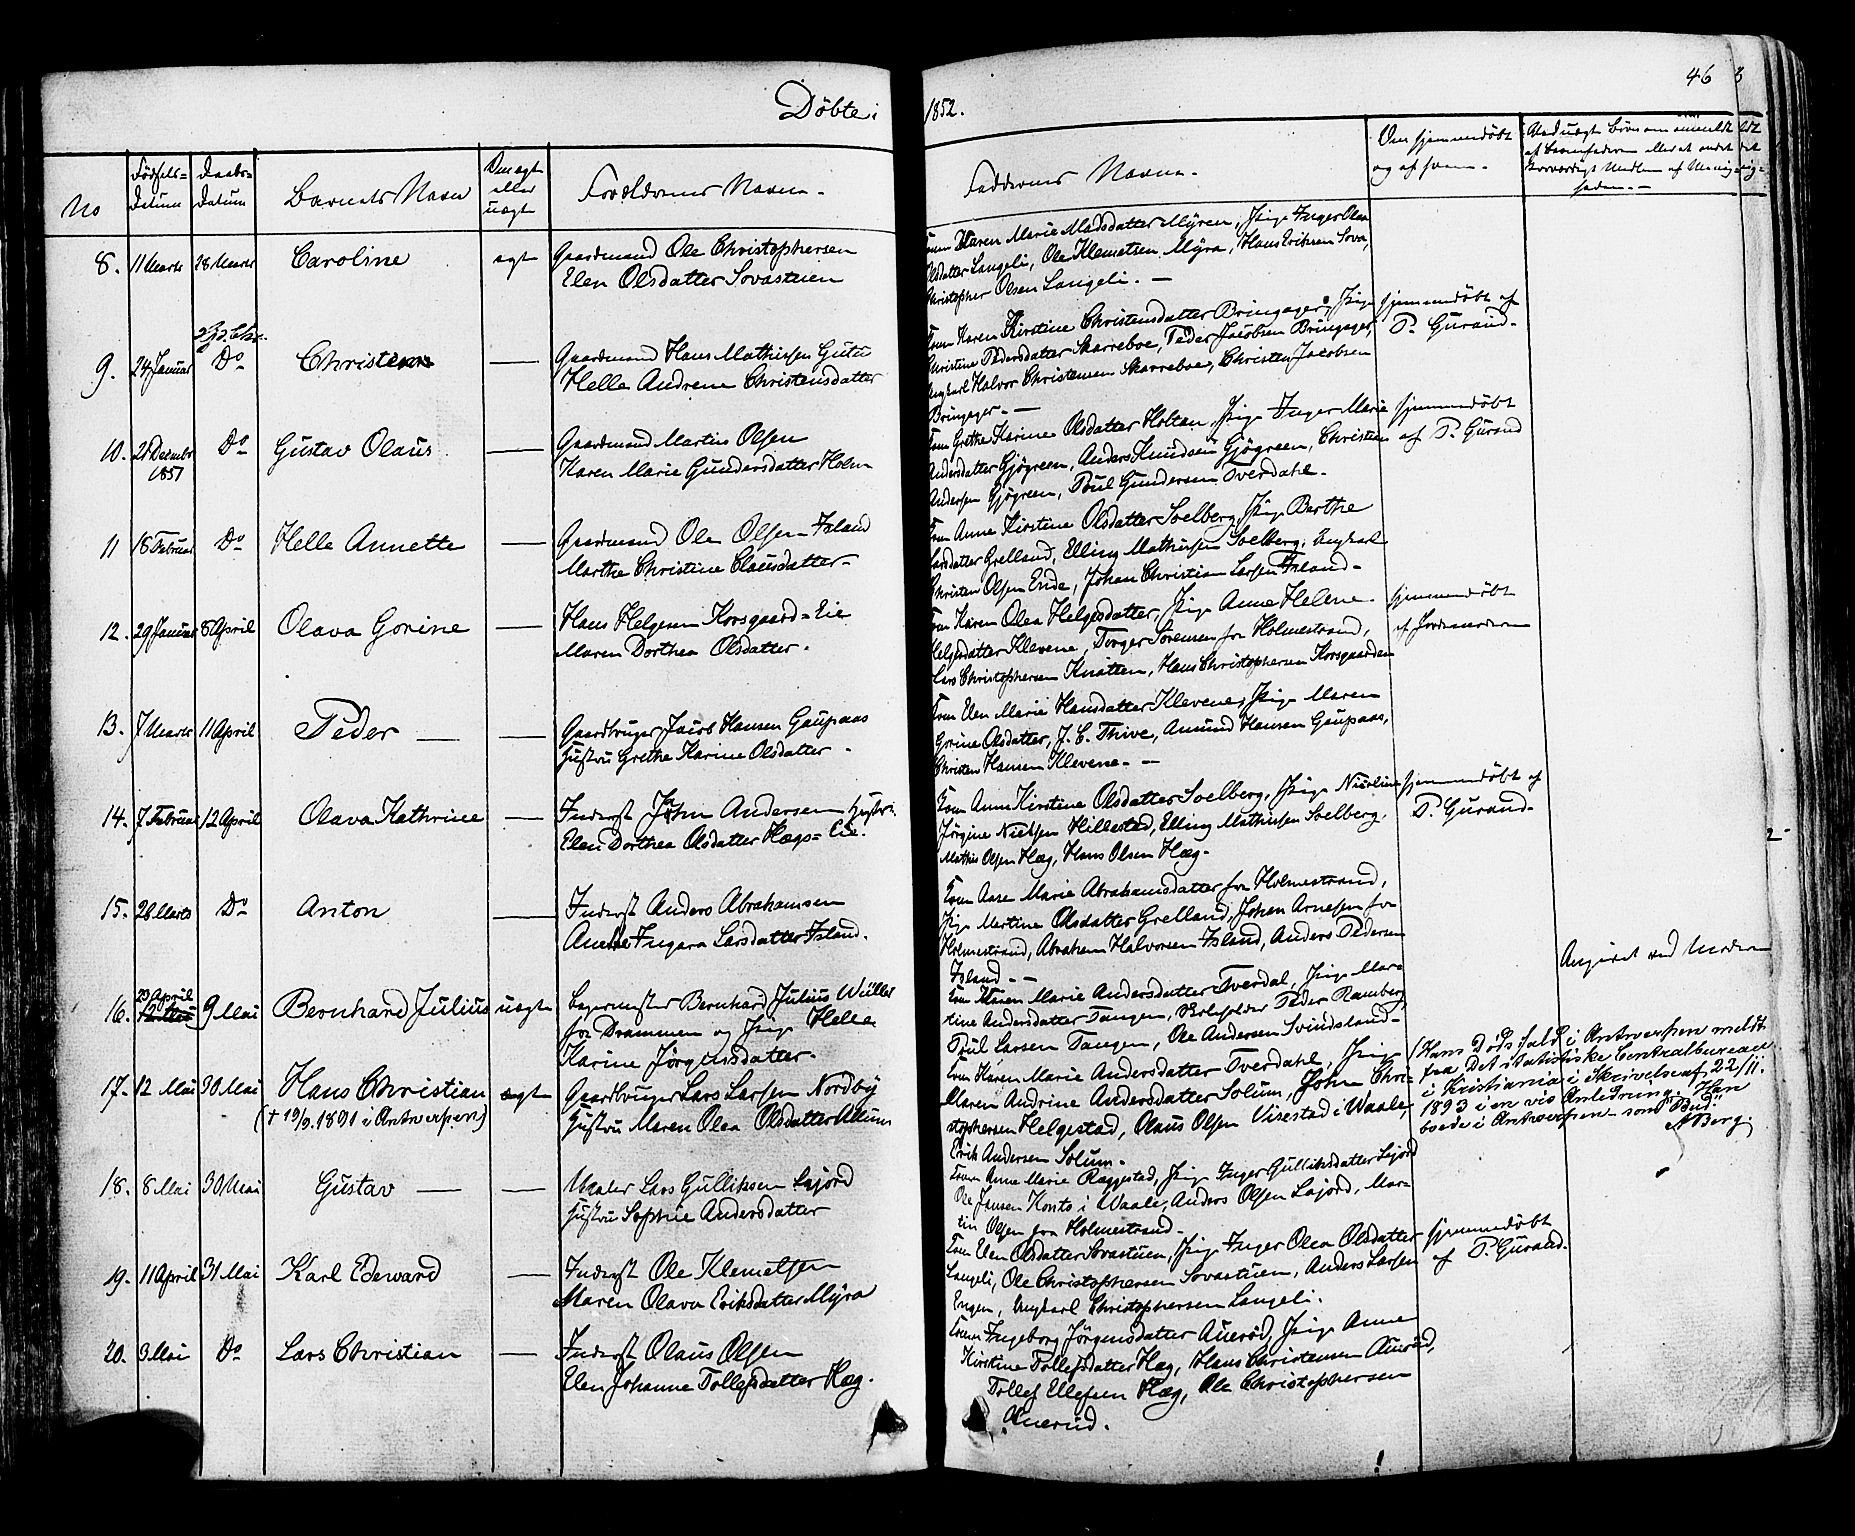 Döbte i
1852.
46
No
Födsels-
Datum
Daabs-
Datum
Barnets Navn
Om ægte
eller
uægte
Forældrenes Navne.
Faddernes Navne.
Om hjemmedöbt
og af hvem.
8. 11 Marts 28 Marts Caroline ægte
Gaardmand Ole Christophersen
Elen Olsdatter Sovastuen
Karen Marie Madsdatter Myren, Pige Inger Olea
Olsdatter Langeli, Ole Klemetsen Myra, Hans Eriksen Sova,
Christopher Olsen Langeli. —
9. 24 Januar Do Christen —
Gaardmand Hans Mathissen Gutu
Helle Andrene Christensdatter
Karen Kirstine Christensdatter Bringager, Pige
Christine Pedersdatter Skarreboe, Peder Jacobsen Bringager,
Ungkarl Halvor Christensen Skarreboe, Christen Jacobsen
Bringager. —
hjemmedöbt af
P. Gurand.
10. 28 December
1851 Do Gustav Olaus —
Gaardmand Martin Olsen
Karen Marie Gundersdatter Holm
Grethe Karine Olsdatter Holtan, Pige Inger Marie
Andersdatter Gjögreen, Anders Knudsen Gjögreen, Christian
Andersen Gjögreen, Poul Gundersen Tverdahl.
hjemmedöbt
af P. Gurand
11 18 Februar Do Helle Annette —
Gaardmand Ole Olsen Island
Marthe Christine Clausdatter
Anne Kirstine Olsdatter Solberg, Pige Berthe
Larsdatter Grelland, Elling Mathissen Solberg, Ungkarl
Christen Olsen Ende, Johan Christian Larsen Island
12. 29 Januar 8 April Olava Gorine —
Hans Helgesen Korsgaard-Eie
Maren Dorthea Olsdatter.
Karen Olea Helgesdatter, Pige Anne Helene
Helgesdatter Klevene, Torger Sörensen fra Holmestrand,
Lars Christophersen Knatten, Hans Christophersen Korsgaarden
hjemmedöbt
af Jordemoderen
13. 7 Marts 11 April Peder — —
Gaardbruger Jacob Hansen Gaupaas
Hustru Grethe Karine Olsdatter.
Elen Marie Hansdatter Klevene, Pige Maren
Gorine Olsdatter, J. C. Thive, Amund Hansen Gaupaas,
Christen Hansen Klevene. —
14. 7 Februar 12 April Olava Kathrine —
Inderst John Andersen Hustru
Elen Dorthea Olsdatter Hægs-Eie.
Anne Kirstine Olsdatter Solberg, Pige Nicoline
Jörgine Nielsen Hillestad, Elling Mathissen Solberg,
Mathis Olsen Hæg, Hans Olsen Hæg.
hjemmedöbt af
P. Gurand.
15. 28 Marts Do Anton —
Inderst Anders Abrahamsen
Ingara Larsdatter Island.
Anne Marie Abrahamsdatter fra Holmestrand,
Pige Martine Olsdatter Grelland, Johan Arnesen fra
Holmestrand, Abraham Halvorsen Island, Anders Pedersen
Island —
16. 23 April 9 Mai Bernhard Julius uægte
Bernhard Julius Wüller
fra Drammen og Pige Helle
Karine Jörgensdatter.
Karen Marie Andersdatter Tverdal, Pige Mar-
tine Andersdatter Tangen, Peder Ramberg,
Poul Larsen Tangen, Ole Andersen Svindsland
Angivet ved Moderen
17. 12 Mai 30 Mai Hans Christian ægte
(† 19/9 1891 i Antwerpen)
Gaardbruger Lars Larsen Nordby
Hustru Maren Olea Olsdatter
Karen Marie Andersdatter Tverdahl, Pige
Maren Andrine Andersdatter Solum, John Chri-
stophersen Helgestad, Olaus Olsen Virestad i Waale,
Erik Andersen Solum.
(Hans Dödsfald i Antwerpen meldt
fra Det statistiske Centralbureau
i Kristiania i Skrivelse af 22/11
1893 i en vis Anledning. Han
boede i Antwerpen som "Bud".
ABerg.
18. 8 Mai 30 Mai Gustav — —
Maler Lars Gulliksen Lajord
Hustru Sophie Andersdatter
Anne Marie Raggestad, Pige Inger Gulliksdatter Lajord
Ole Jansen Konto i Waale, Anders Olsen Lajord, Mar-
tin Olsen fra Holmestrand.
19. 11 April 31 Mai Karl Edeward —
Inderst Ole Klemetsen
Maren Olava Eriksdatter Myra
Elen Olsdatter Sovastuen, Pige Inger Olea Olsdatter
Langeli, Ole Christophersen Sovastuen, Anders Larsen
Engen, Ungkarl Christophersen Langeli.
hjemmedöbt
af P. Gurand.
20. 3 Mai Do Lars Christian —
Inderst Olaus Olsen
Elen Johanne Tollefsdatter Hæg.
Ingeborg Jörgensdatter Auerød, Pige Anne
Kirstine Tollefsdatter Hæg, Hans Christensen Auerød,
Tollef Ellefsen Hæg, Ole Christophersen
Auerud.